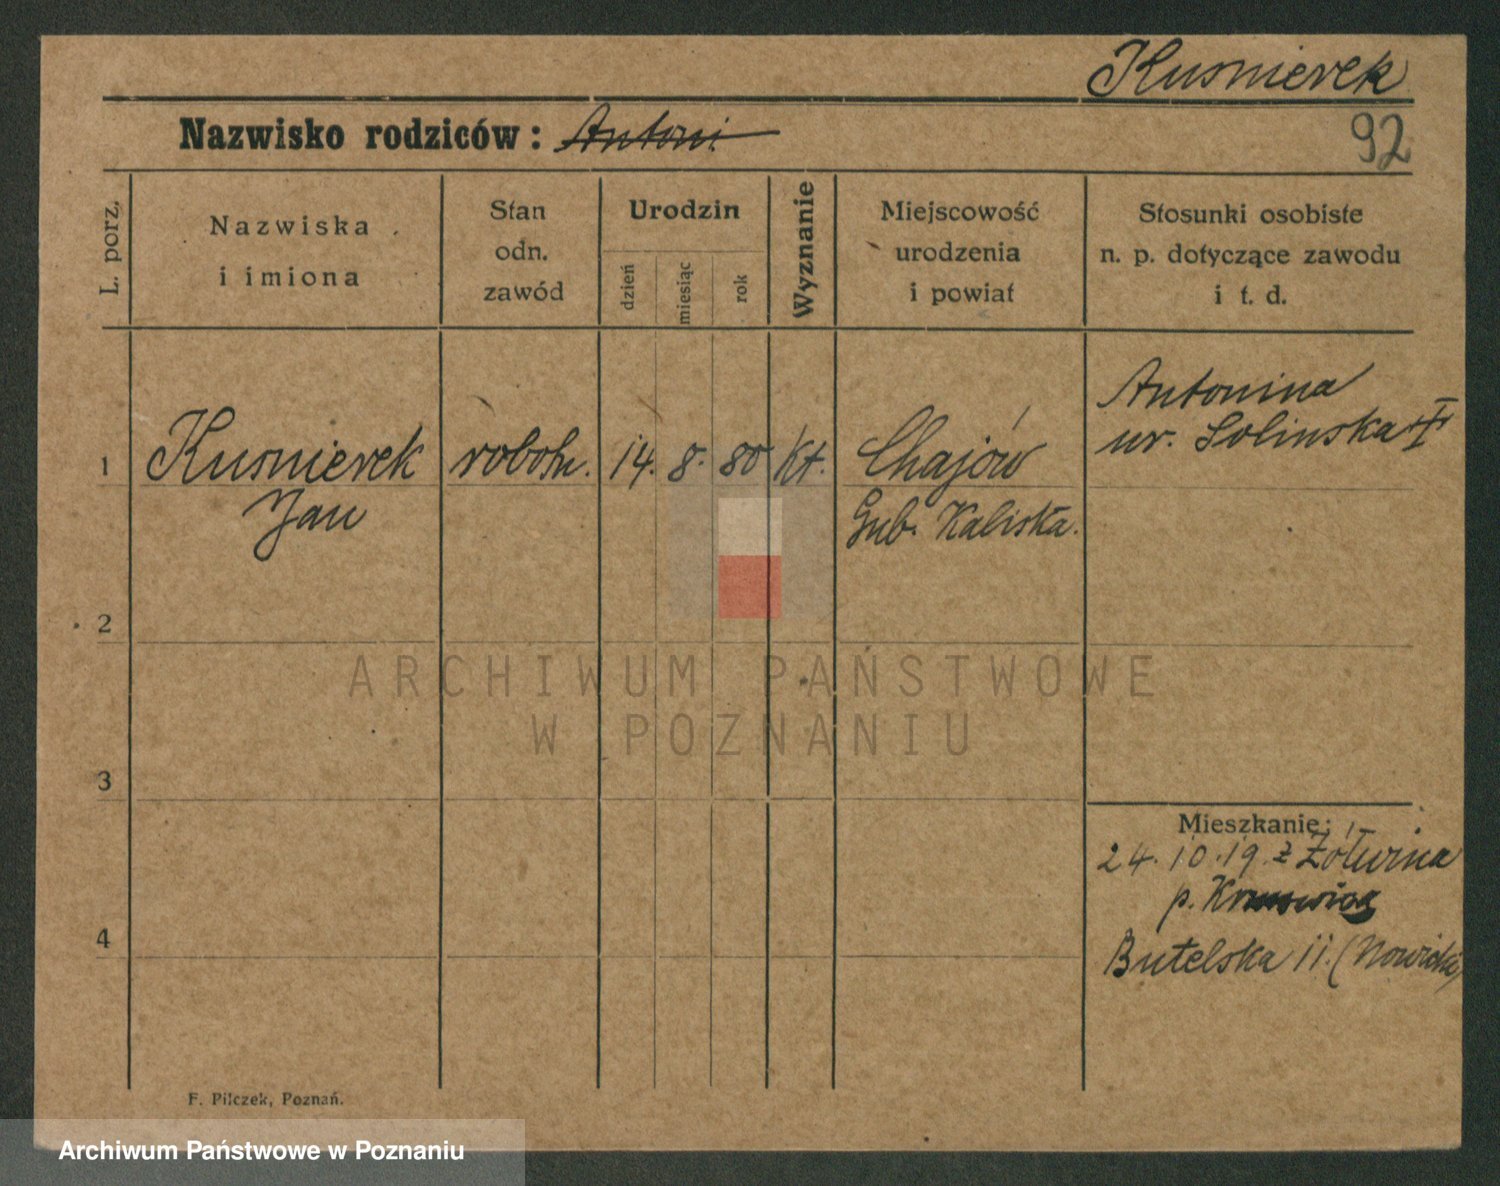 Kusnierek
Nazwisko rodziców : Antoni
92
L. porz.
Nazwiska
i imiona
Stan
odn.
zawód
Urodzin
dzień
miesiąc
rok
Wyznanie
Miejscowość
urodzenia
i powiat
Stosunki osobiste
n. p. dotyczące zawodu
i t. d.
1
Kusnierek
Jan
robotn.
14. 8. 80
kt.
Chajów
Gub. Kaliska.
Antonina
ur. Solinska
2
3
4
Mieszkanie:
24.10.19. z Żółwina
p.
Butelska 11. (Nowicki)
F. Pilczek, Poznań.
ARCHIWUM PAŃSTWOWE
W POZNANIU
Archiwum Państwowe w Poznaniu